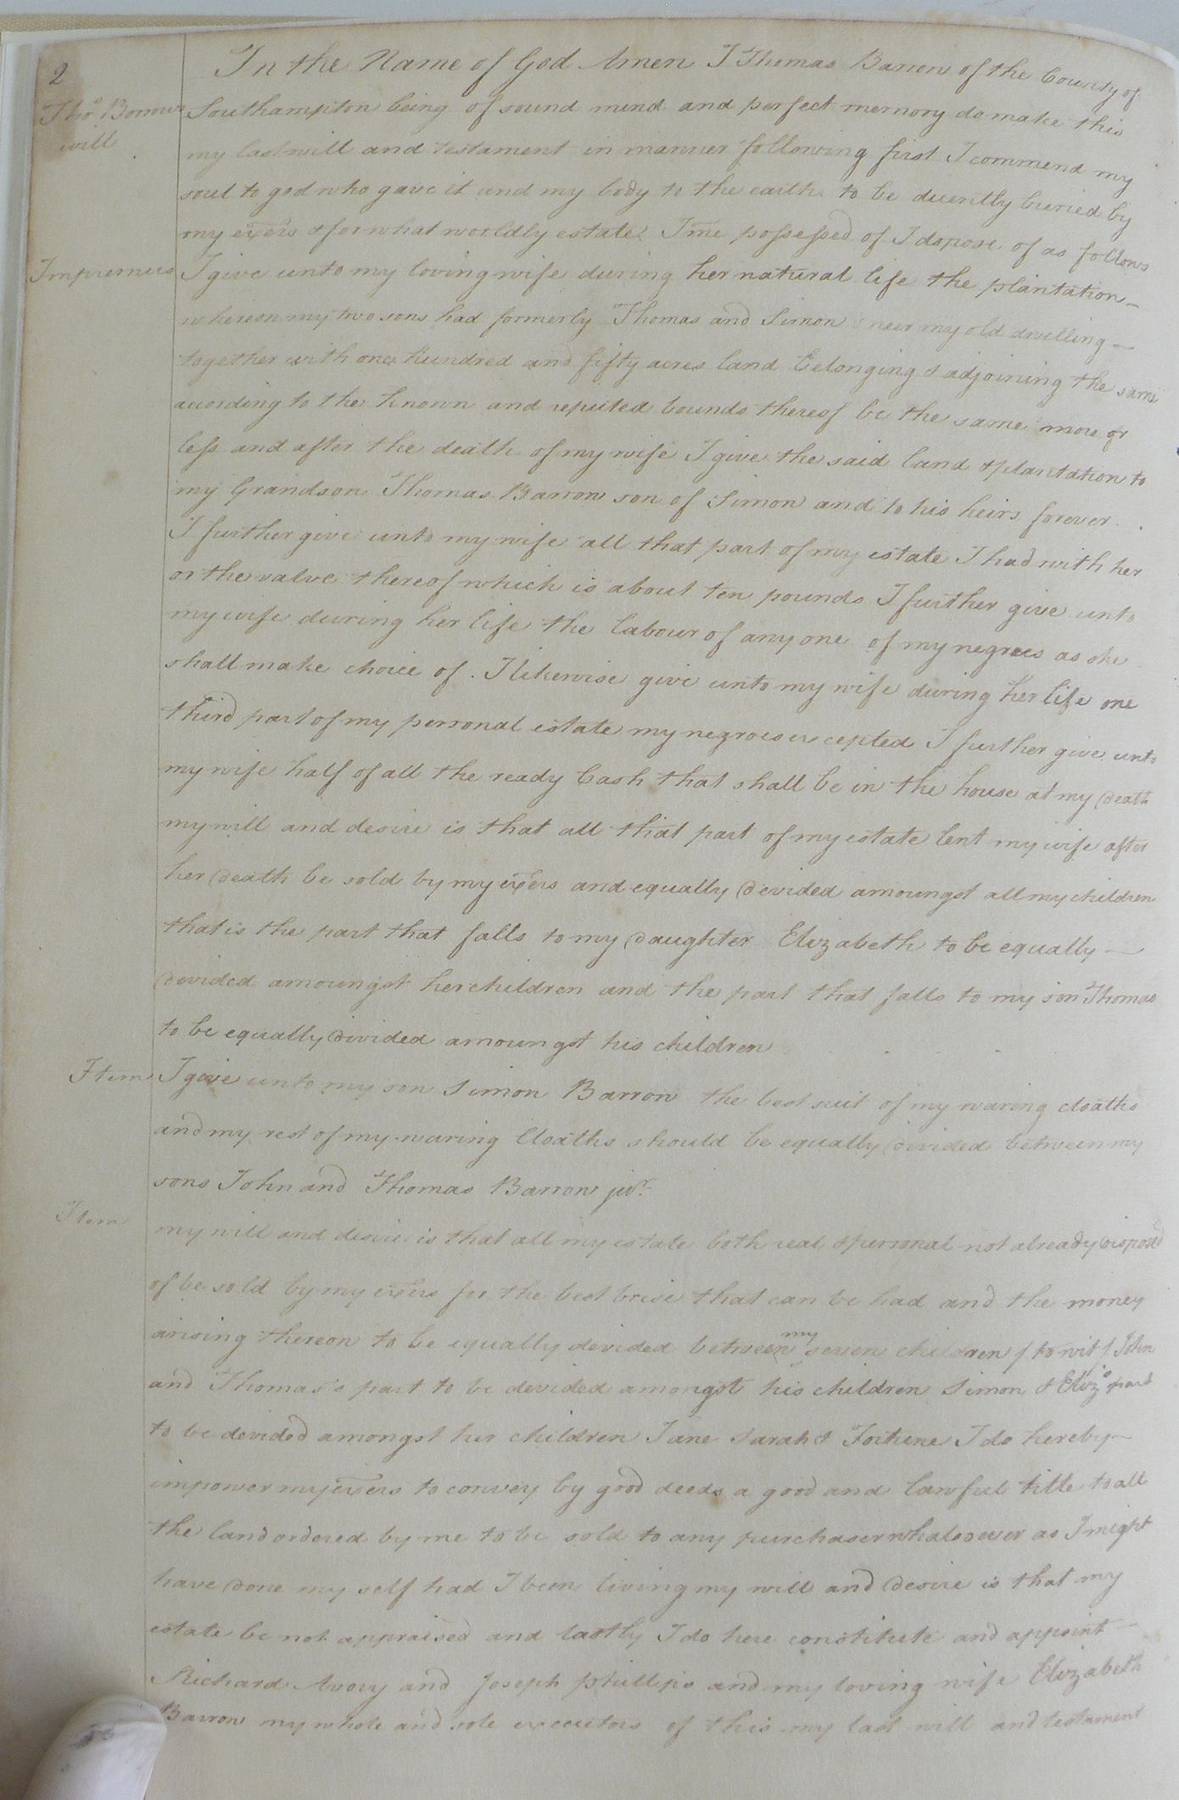 2
In the Name of God Amen I Thomas Barrow of the County of
Tho.s will
Southampton being of sound mind and perfect memory do make this
my last will and testament in manner following first I commend my
soul to god who gave it and my body to the earth to be decently buried by
my exrs & for what worldly estate I me possessed of I dispose of as follows
Imprimus
I give unto my loving wife during her natural life the plantation
whereon my two sons had formerly Thomas and Simon near my old dwelling
together with one hundred and fifty acres land belonging & adjoining the same
according to the known and reputed bounds thereof be the same more or
less and after the death of my wife I give the said land & plantation to
my Grandson Thomas Barrow son of Simon and to his heirs forever
I further give unto my wife all that part of my estate I had with her
or the value thereof which is about ten pounds I further give unto
my wife during her life the labour of any one of my negroes as she
shall make choice of. I likewise give unto my wife during her life one
third part of my personal estate my negroes excepted I further give unto
my wife half of all the ready Cash that shall be in the house at my death
my will and desire is that all that part of my estate lent my wife after
her death be sold by my exers and equally devided amoungst all my children
that is the part that falls to my daughter Elizabeth to be equally
devided amoungst her children and the part that falls to my son Thomas
to be equally divided amoungst his children
Item I give unto my son Simon Barrow the best suit of my waring cloaths
and my rest of my waring Cloaths should be equally devided between my
sons John and Thomas Barrow junr.
Item
my will and desire is that all my estate both real & personal not already disposd
of be sold by my exers for the best brise that can be had and the money
arising thereon to be equally devided between my seven children (to wit) John
and Thomas's part to be devided amongst his children Simon & Eliz.s part
to be devided amongst her children Jane Sarah & Fortune I do hereby
impower my exers to convey by good deeds a good and lawful title to all
the land ordered by me to be sold to any purchaser whatsoever as I might
have done my self had I been living my will and desire is that my
estate be not appraised and lastly I do here constitute and appoint
Richard Avory and Joseph Phillips and my loving wife Elizabeth
Barrow my whole and sole executors of this my last will and testament